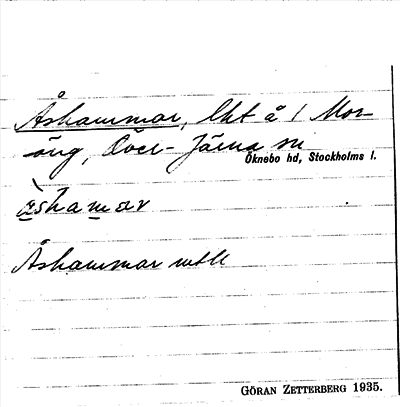 Åshammar, lht å 1 Mor-
äng, Över-Järna sn
Öknebo hd, Stockholms l.
åshamar
Åshammar utt
GÖRAN ZETTERBERG 1935.